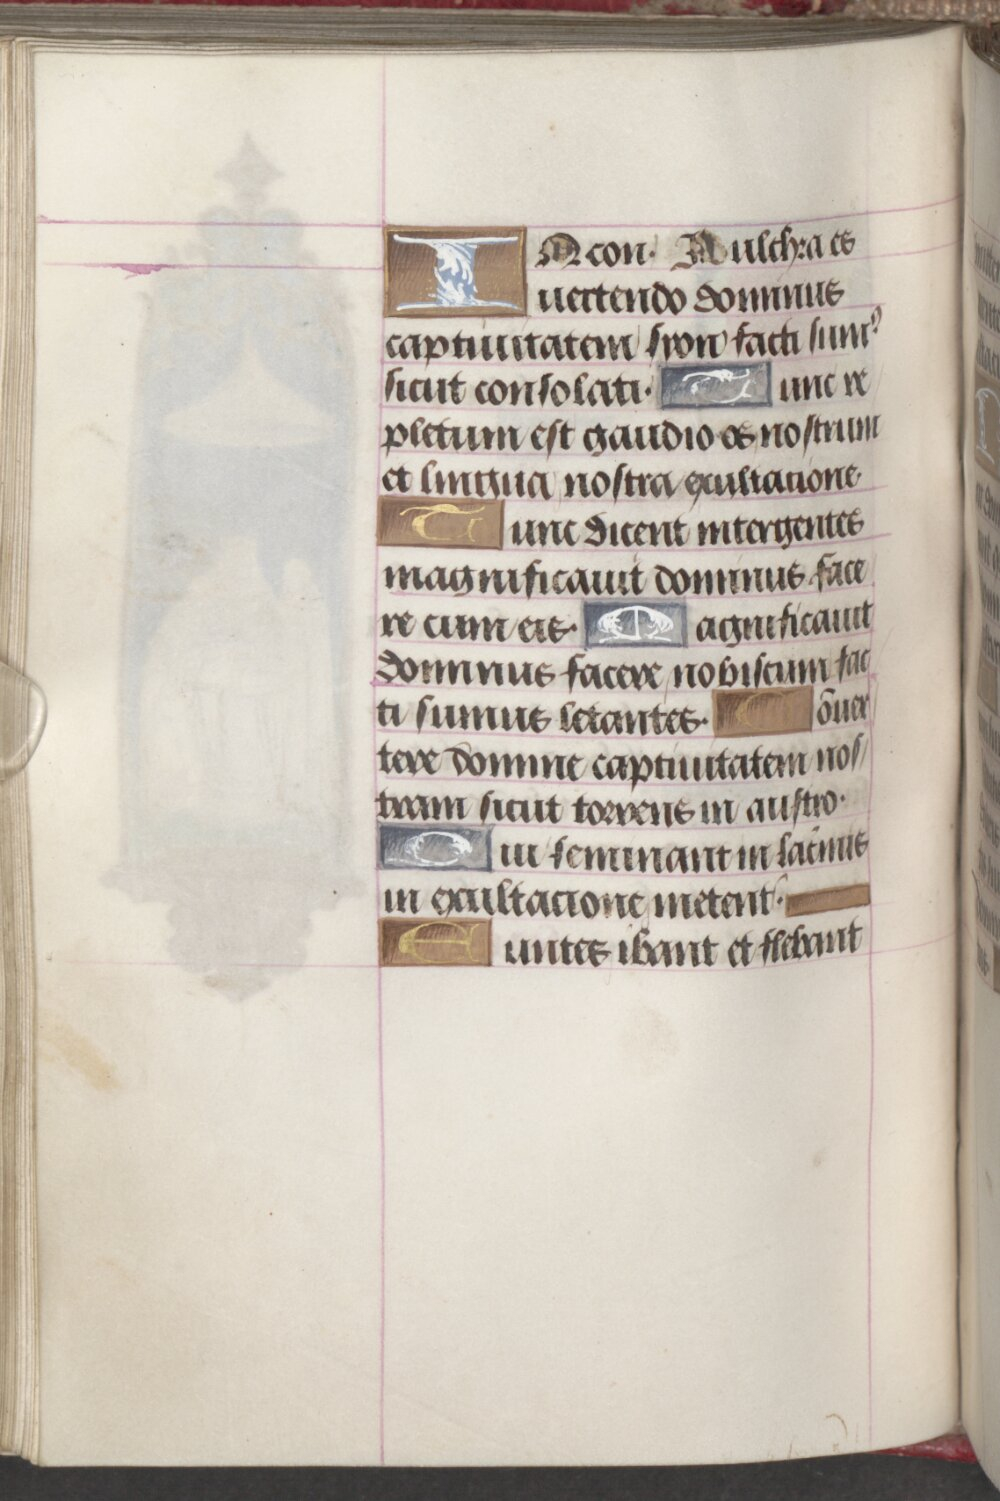 I N con. Pulchra es
uertendo dominus
captiuitatem syon facti sumꝰ
sicut consolati. Tunc re
pletum est gaudio os nostrum
et lingua nostra exultatione.
Tunc dicent inter gentes
magnificauit dominus face
re cum eis. Magnificauit
dominus facere nobiscum fac
ti sumus letantes. Cōuer
tere domine captiuitatem nos
tram sicut torrens in austro.
Qui seminant in lac̄mis
in exultatione metent.
Euntes ibant et flebant